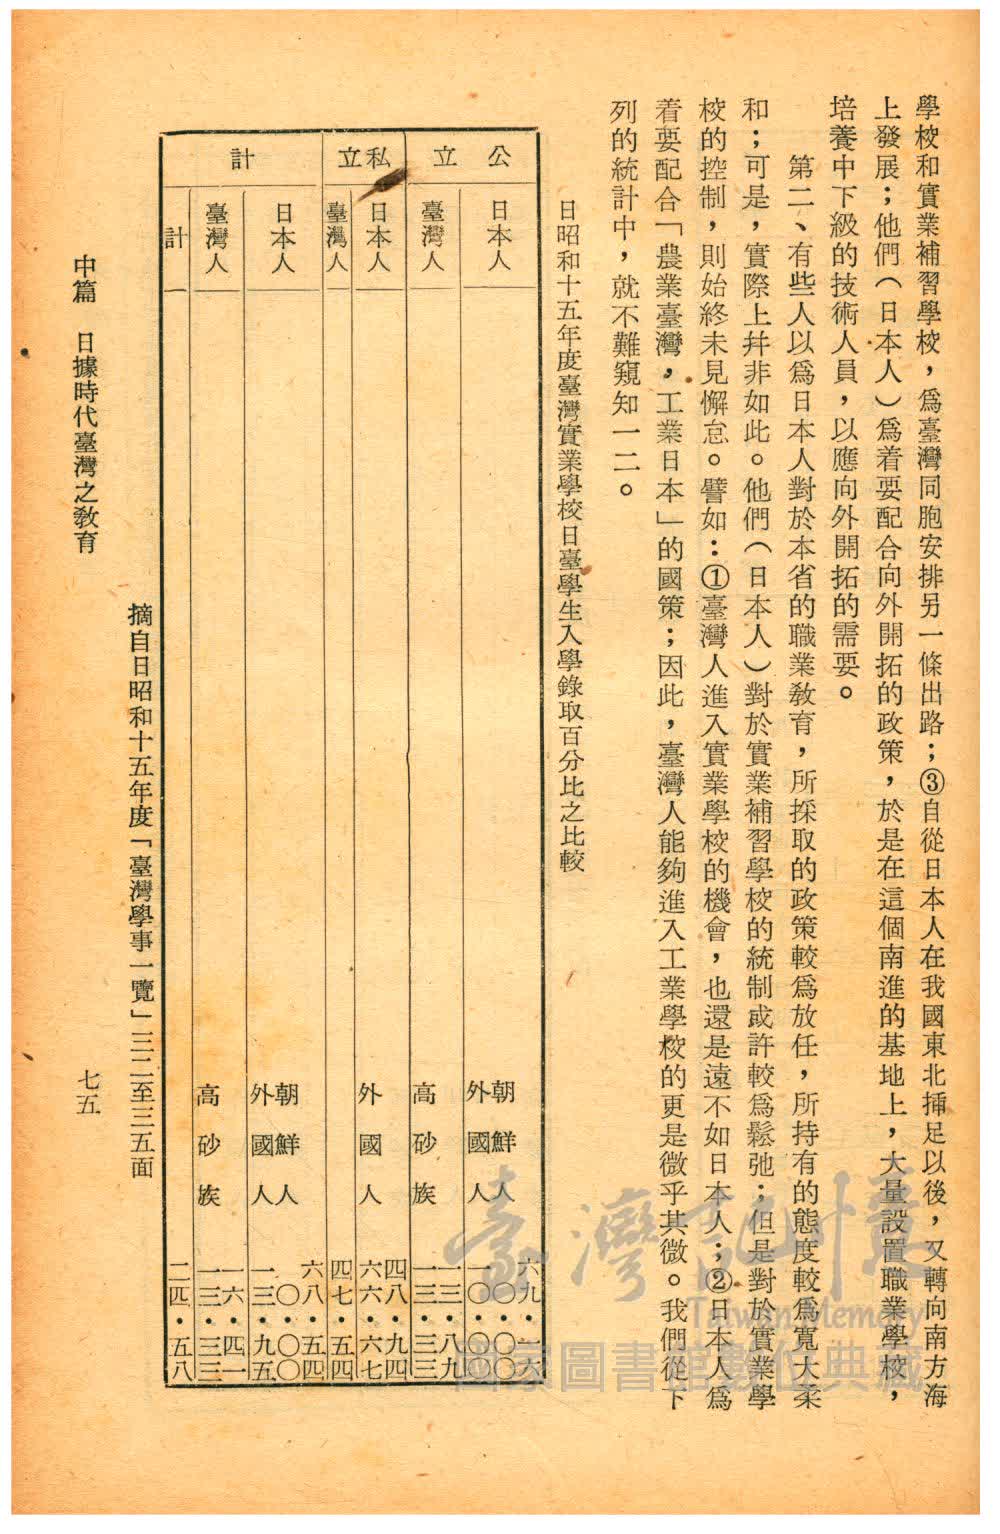 學校和實業補習學校，爲臺灣同胞安排另一條出路；③自從日本人在我國東北揷足以後，又轉向南方海
上發展；他們（日本人）爲着要配合向外開拓的政策，於是在這個南進的基地上，大量設置職業學校，
培養中下級的技術人員，以應向外開拓的需要。
第二、有些人以爲日本人對於本省的職業敎育，所採取的政策較爲放任，所持有的態度較爲寬大柔
和；可是，實際上幷非如此。他們（日本人）對於實業補習學校的統制或許較爲鬆弛；但是對於實業學
校的控制，則始終未見懈怠。譬如：①臺灣人進入實業學校的機會，也還是遠不如日本人；②日本人爲
着要配合「農業臺灣，工業日本」的國策；因此，臺灣人能夠進入工業學校的更是微乎其微。我們從下
列的統計中，就不難窺知一二。
日昭和十五年度臺灣實業學校日臺學生入學錄取百分比之比較
公立
日本人 六九・一六
朝鮮人 〇・〇〇
外國人 一〇・〇〇
臺灣人 一三・八九
高砂族 一三・三三
私立
日本人 四八・九四
外國人 六六・六七
臺灣人 四七・五四
計
日本人 六八・五四
朝鮮人 〇・〇〇
外國人 一三・九五
臺灣人 一六・四一
高砂族 一三・三三
計 二四・五八
摘自日昭和十五年度「臺灣學事一覽」三二至三五面
中篇 日據時代臺灣之敎育
七五
臺灣記憶
Taiwan Memory
國家圖書館數位典藏